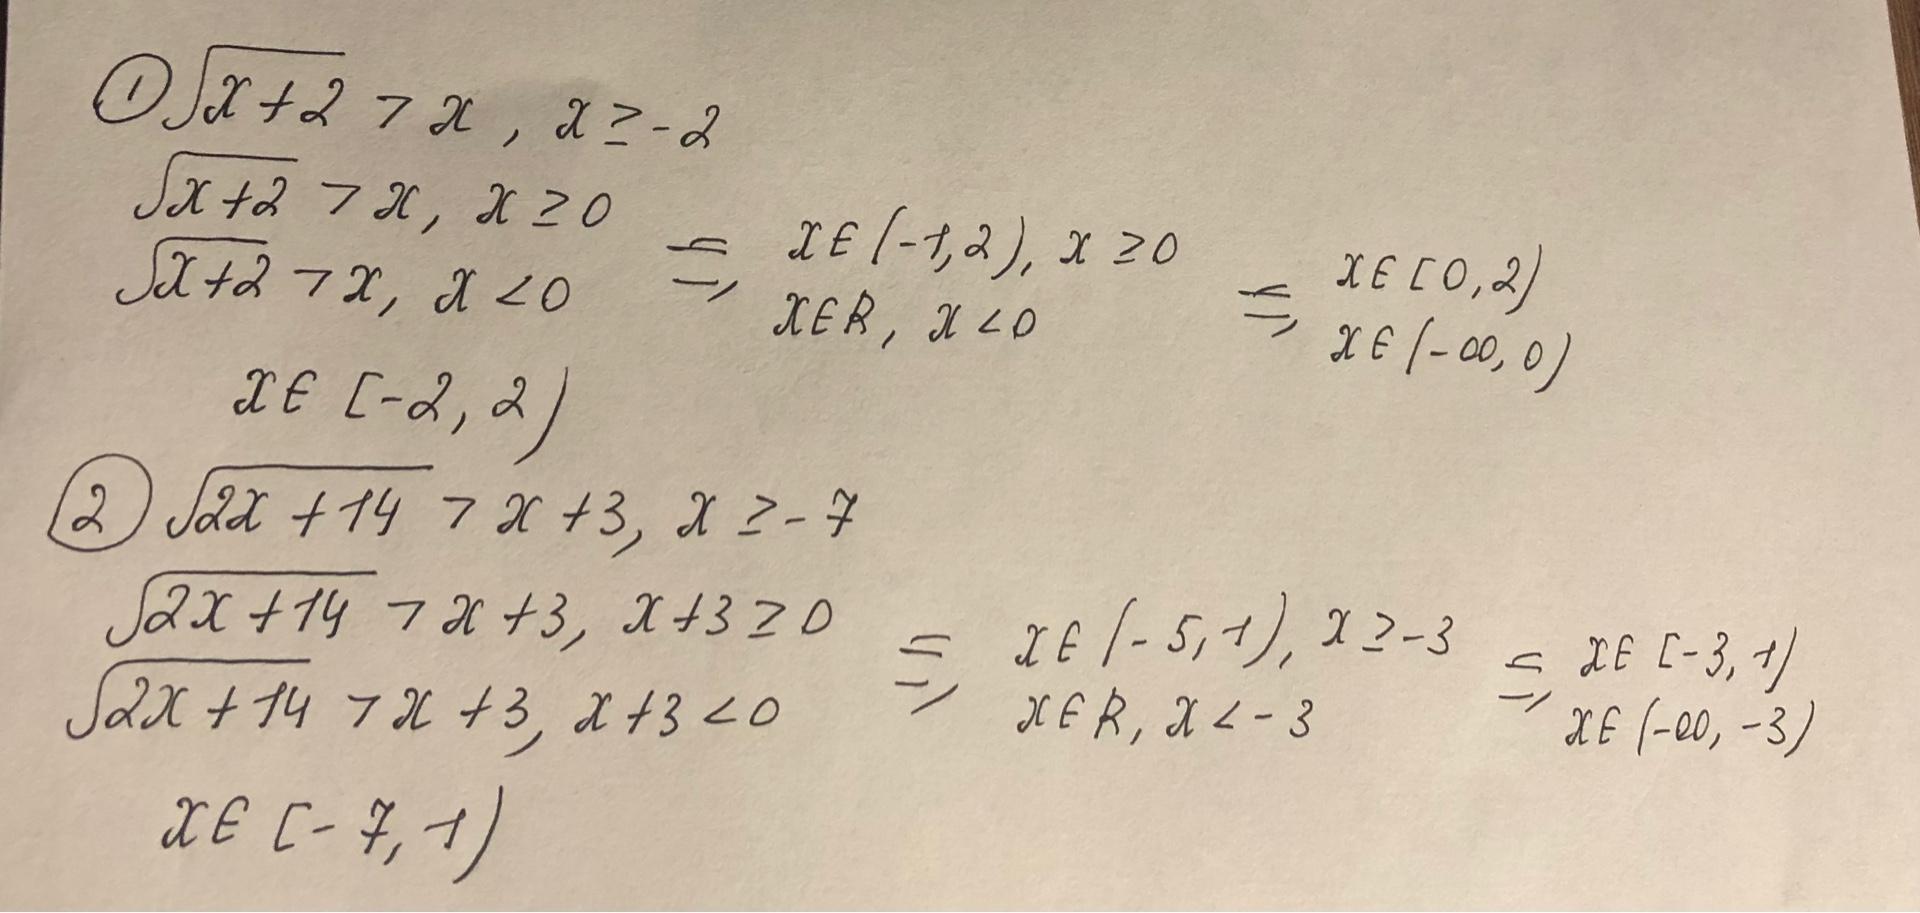 ① √x+2 > x, x ≥ -2
√x+2 > x, x ≥ 0
√x+2 > x, x < 0
⇒ x∈(-1,2), x ≥ 0
x∈R, x < 0
⇒ x∈[0,2)
x∈(-∞,0)
x∈[-2,2)
② √2x+14 > x+3, x ≥ -7
√2x+14 > x+3, x+3 ≥ 0
√2x+14 > x+3, x+3 < 0
⇒ x∈(-5,1), x ≥ -3
x∈R, x < -3
⇒ x∈[-3,1)
x∈(-∞,-3)
x∈[-7,1)